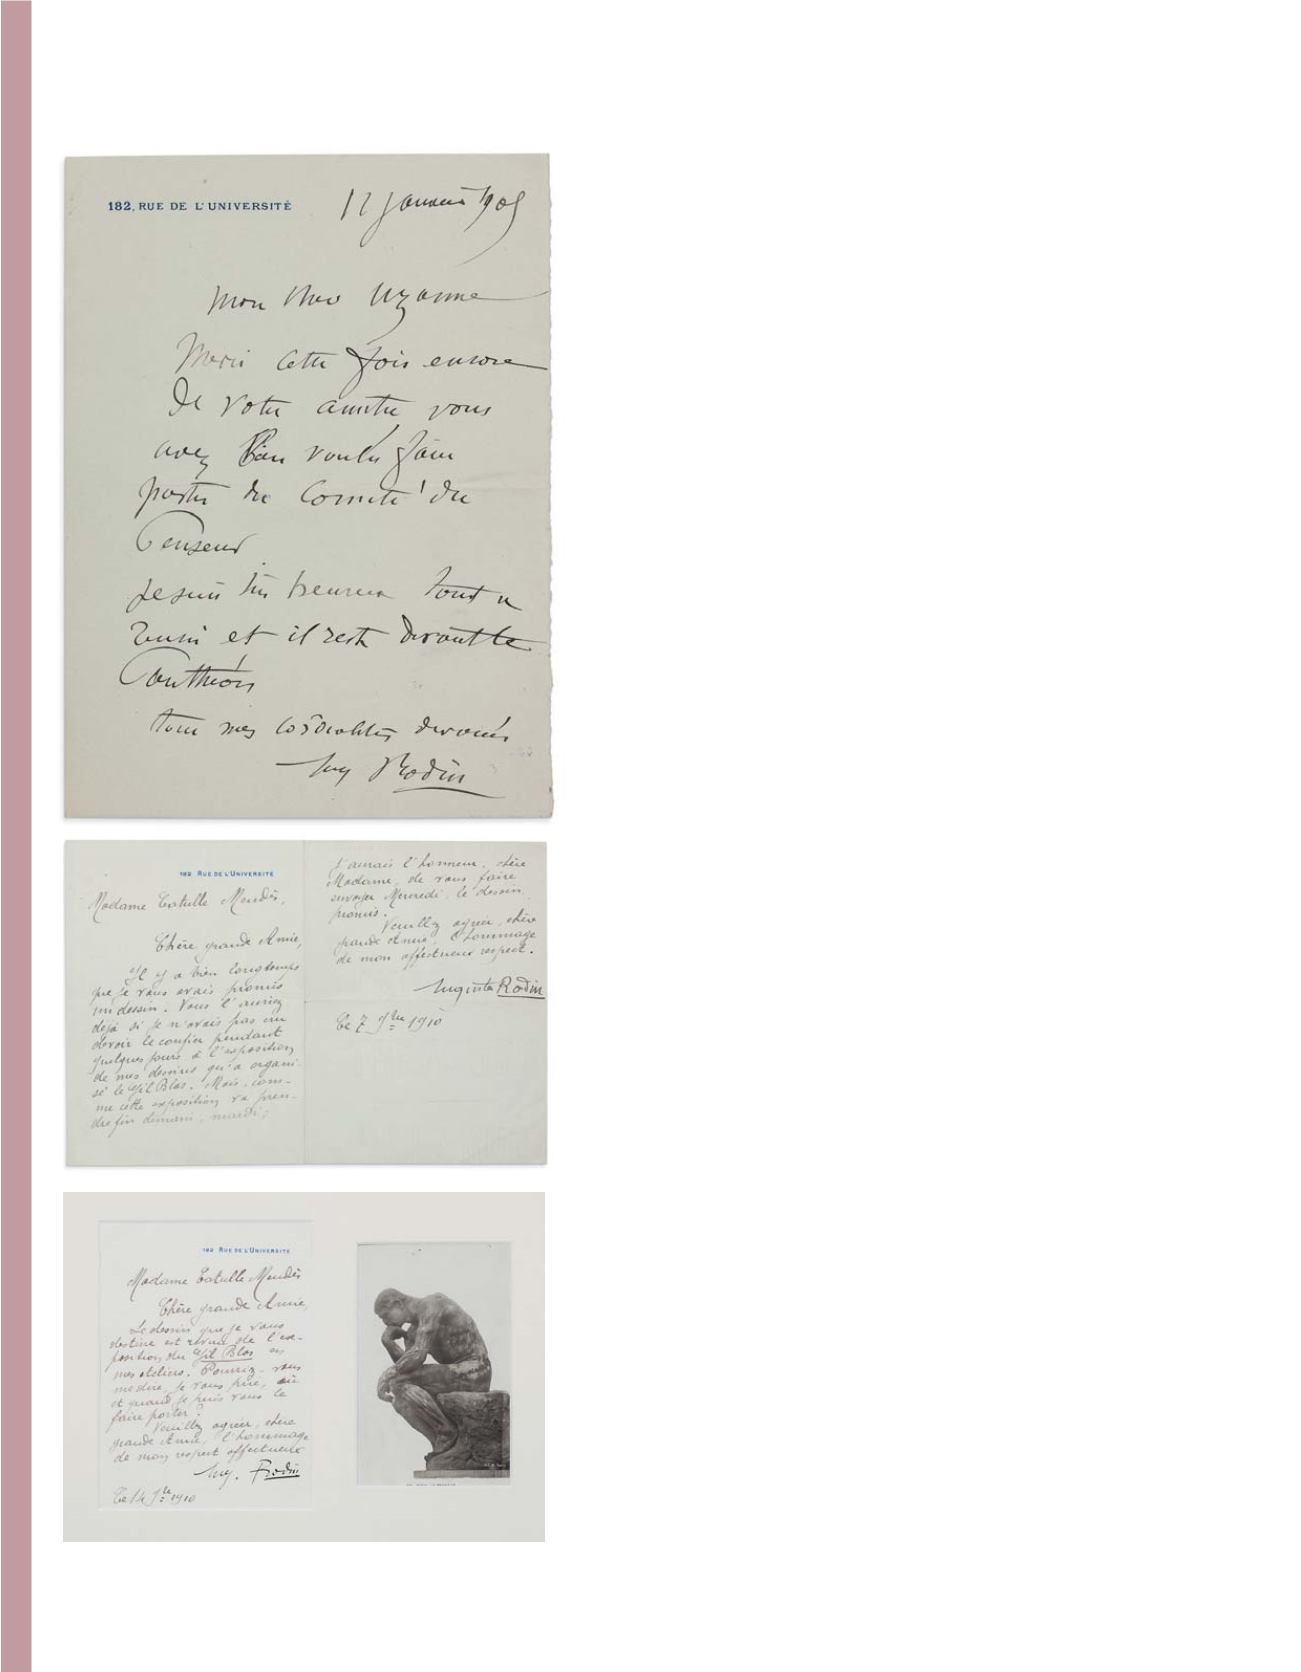 182, RUE DE L'UNIVERSITÉ
12 janvier 1905
Mon cher Uzanne
Merci cette fois encore
de votre amitié vous
avez bien voulu faire
partie du Comité du
Penseur
je suis très heureux tout a
réussi et il reste devant le
Panthéon
tous mes cordialités dévoués
Aug Rodin
182 RUE DE L'UNIVERSITÉ
Madame Catulle Mendès,
Chère grande Amie,
Il y a bien longtemps
que je vous avais promis
un dessin. Vous l'auriez
déjà si je n'avais pas cru
devoir le confier pendant
quelques jours à l'exposition
de mes dessins qu'a organi-
sé le Gil Blas. Mais, com-
me cette exposition va pren-
dre fin demain, mardi,
j'aurais l'honneur, chère
Madame, de vous faire
envoyer Mercredi, le dessin
promis.
Veuillez agréer, chère
grande Amie, l'hommage
de mon affectueux respect.
Auguste Rodin
Ce 7 9bre 1910
182 RUE DE L'UNIVERSITÉ
Madame Catulle Mendès
Chère grande Amie,
Le dessin que je vous
destine est revenu de l'ex-
position du Gil Blas en
mes ateliers. Pourriez-vous
me dire, je vous prie, où
et quand je puis vous le
faire porter?
Veuillez agréer, chère
grande Amie, l'hommage
de mon respect affectueux
Aug. Rodin
Ce 14 9bre 1910